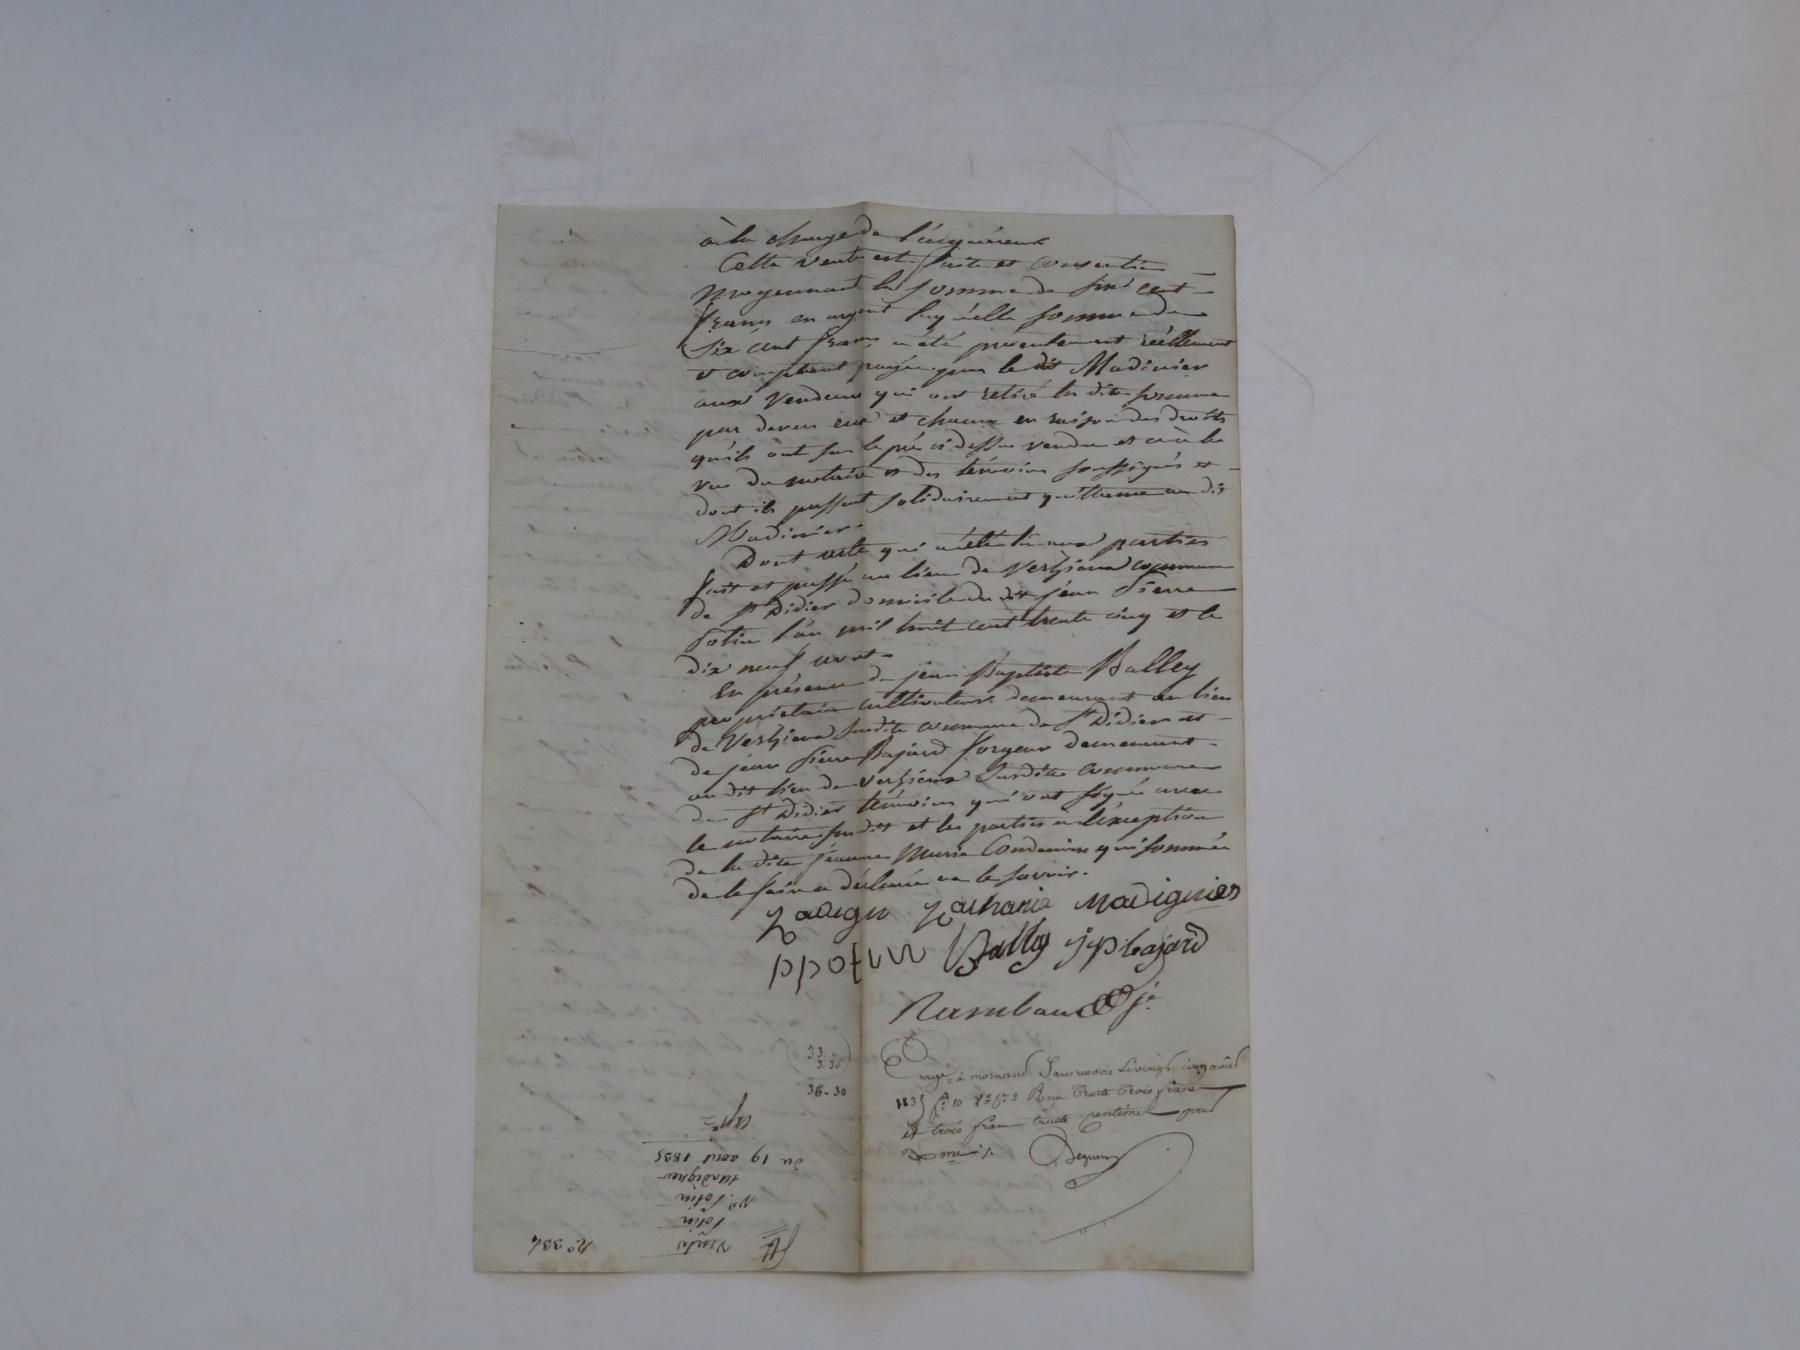 à la charge de l'acquéreur
Cette vente est faite et consentie
moyennant la somme de six cent
francs en argent laquelle somme de
six cent francs a été présentement réellement
et comptant payée par le dit Madinier
aux vendeurs qui ont retiré la dite somme
par devers eux et chacun en raison des droits
qu'ils ont sur le pré ci dessus vendu et ce à la
vue du notaire et des témoins soussignés et
dont ils passent solidairement quittance au dit
Madinier.
Dont acte qui a été lu aux parties
fait et passé au lieu de commune
de St Didier domicile du dit jean Pierre
Potin l'an mil huit cent trente cinq et le
dix neuf aout
En présence de jean Baptiste Balley
propriétaire cultivateur demeurant au lieu
de susdite commune de St Didier et
de jean Pierre Bajard forgeur demeurant
au dit lieu de susdite commune
de St Didier témoins qui ont signé avec
le notaire susdit et les parties à l'exception
de la dite jeanne Marie Condamine qui sommée
de le faire a déclaré ne le savoir.
Zacharie Madignier
ppotin Bally jpbajard
Rambaud je
33. "
3. 30
36 - 30
Enregé à mornant Sans renvois Le vingt cinq août
1835 fo 10 Ro cs 2 Reçu trente trois francs
et trois francs trente centimes pour
Deguin
Vente
Potin
No. Potin
Madignier
du 19 aout 1835
No 334